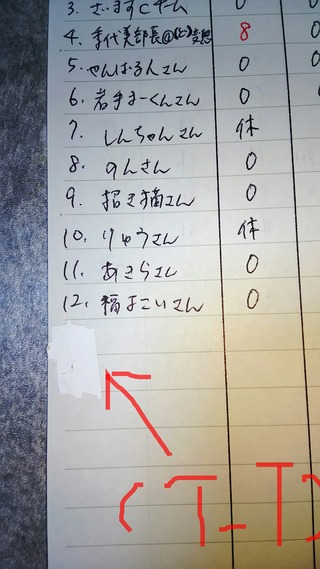 3. ざいますCチーム 0
4. 8
5. やんばるんさん 0
6. 若手まーくんさん 0
7. しんちゃんさん 休
8. のんさん 0
9. 招き猫さん 0
10. りゅうさん 休
11. あきらさん 0
12. 福よこいさん 0
(T_T)